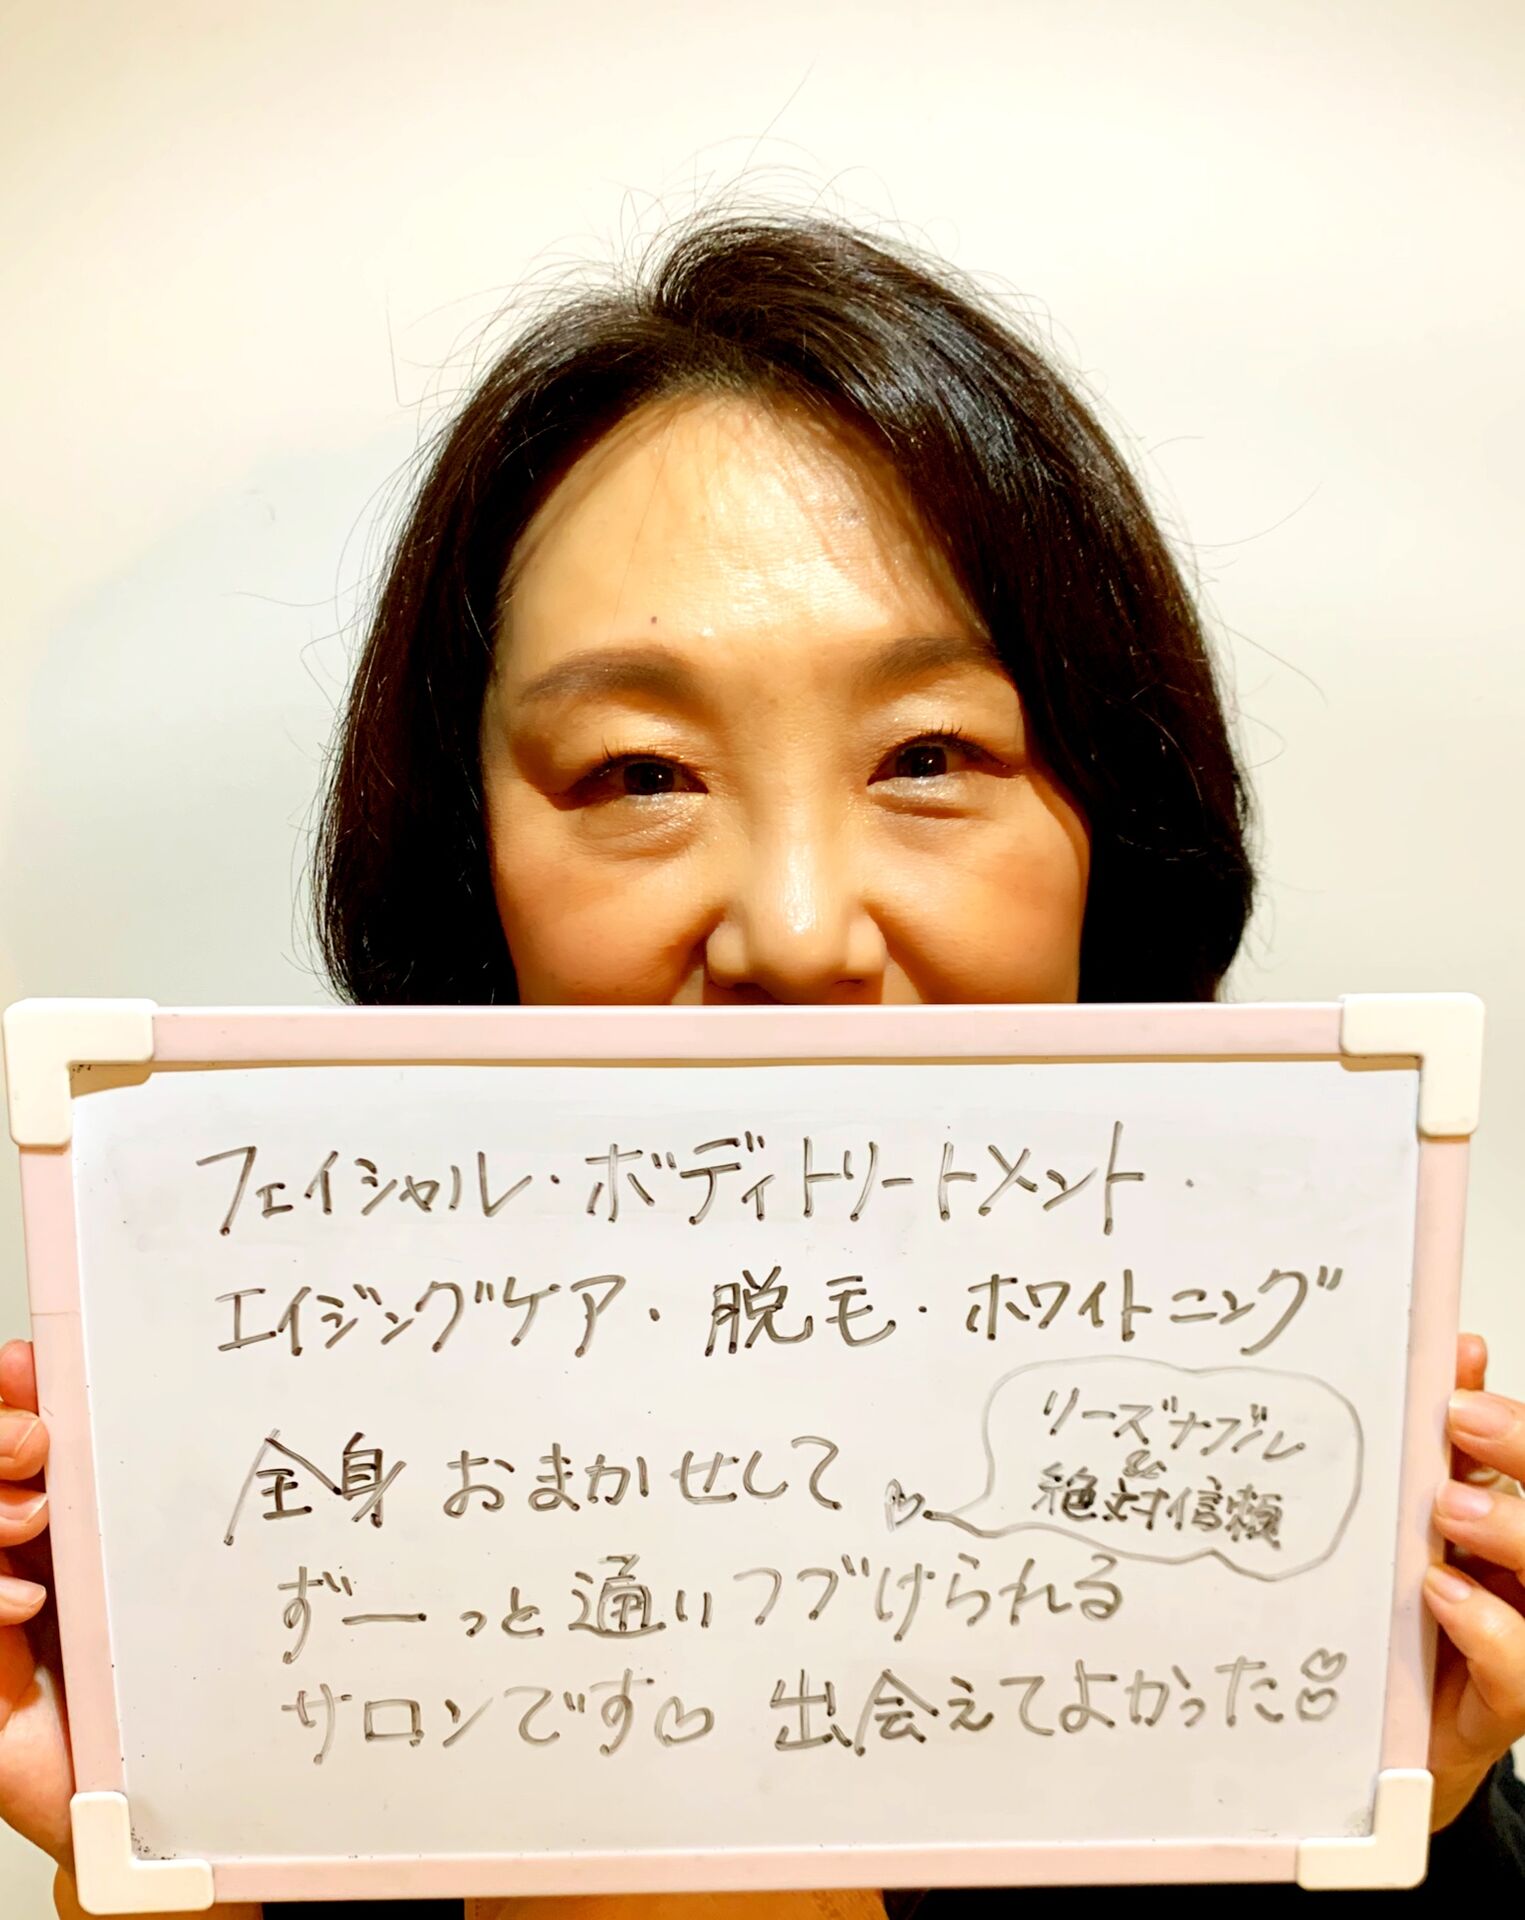 フェイシャル・ボディトリートメント・
エイジングケア・脱毛・ホワイトニング
全身 おまかせして♡
リーズナブル
&
絶対信頼
ずーっと通いつづけられる
サロンです♡ 出会えてよかった